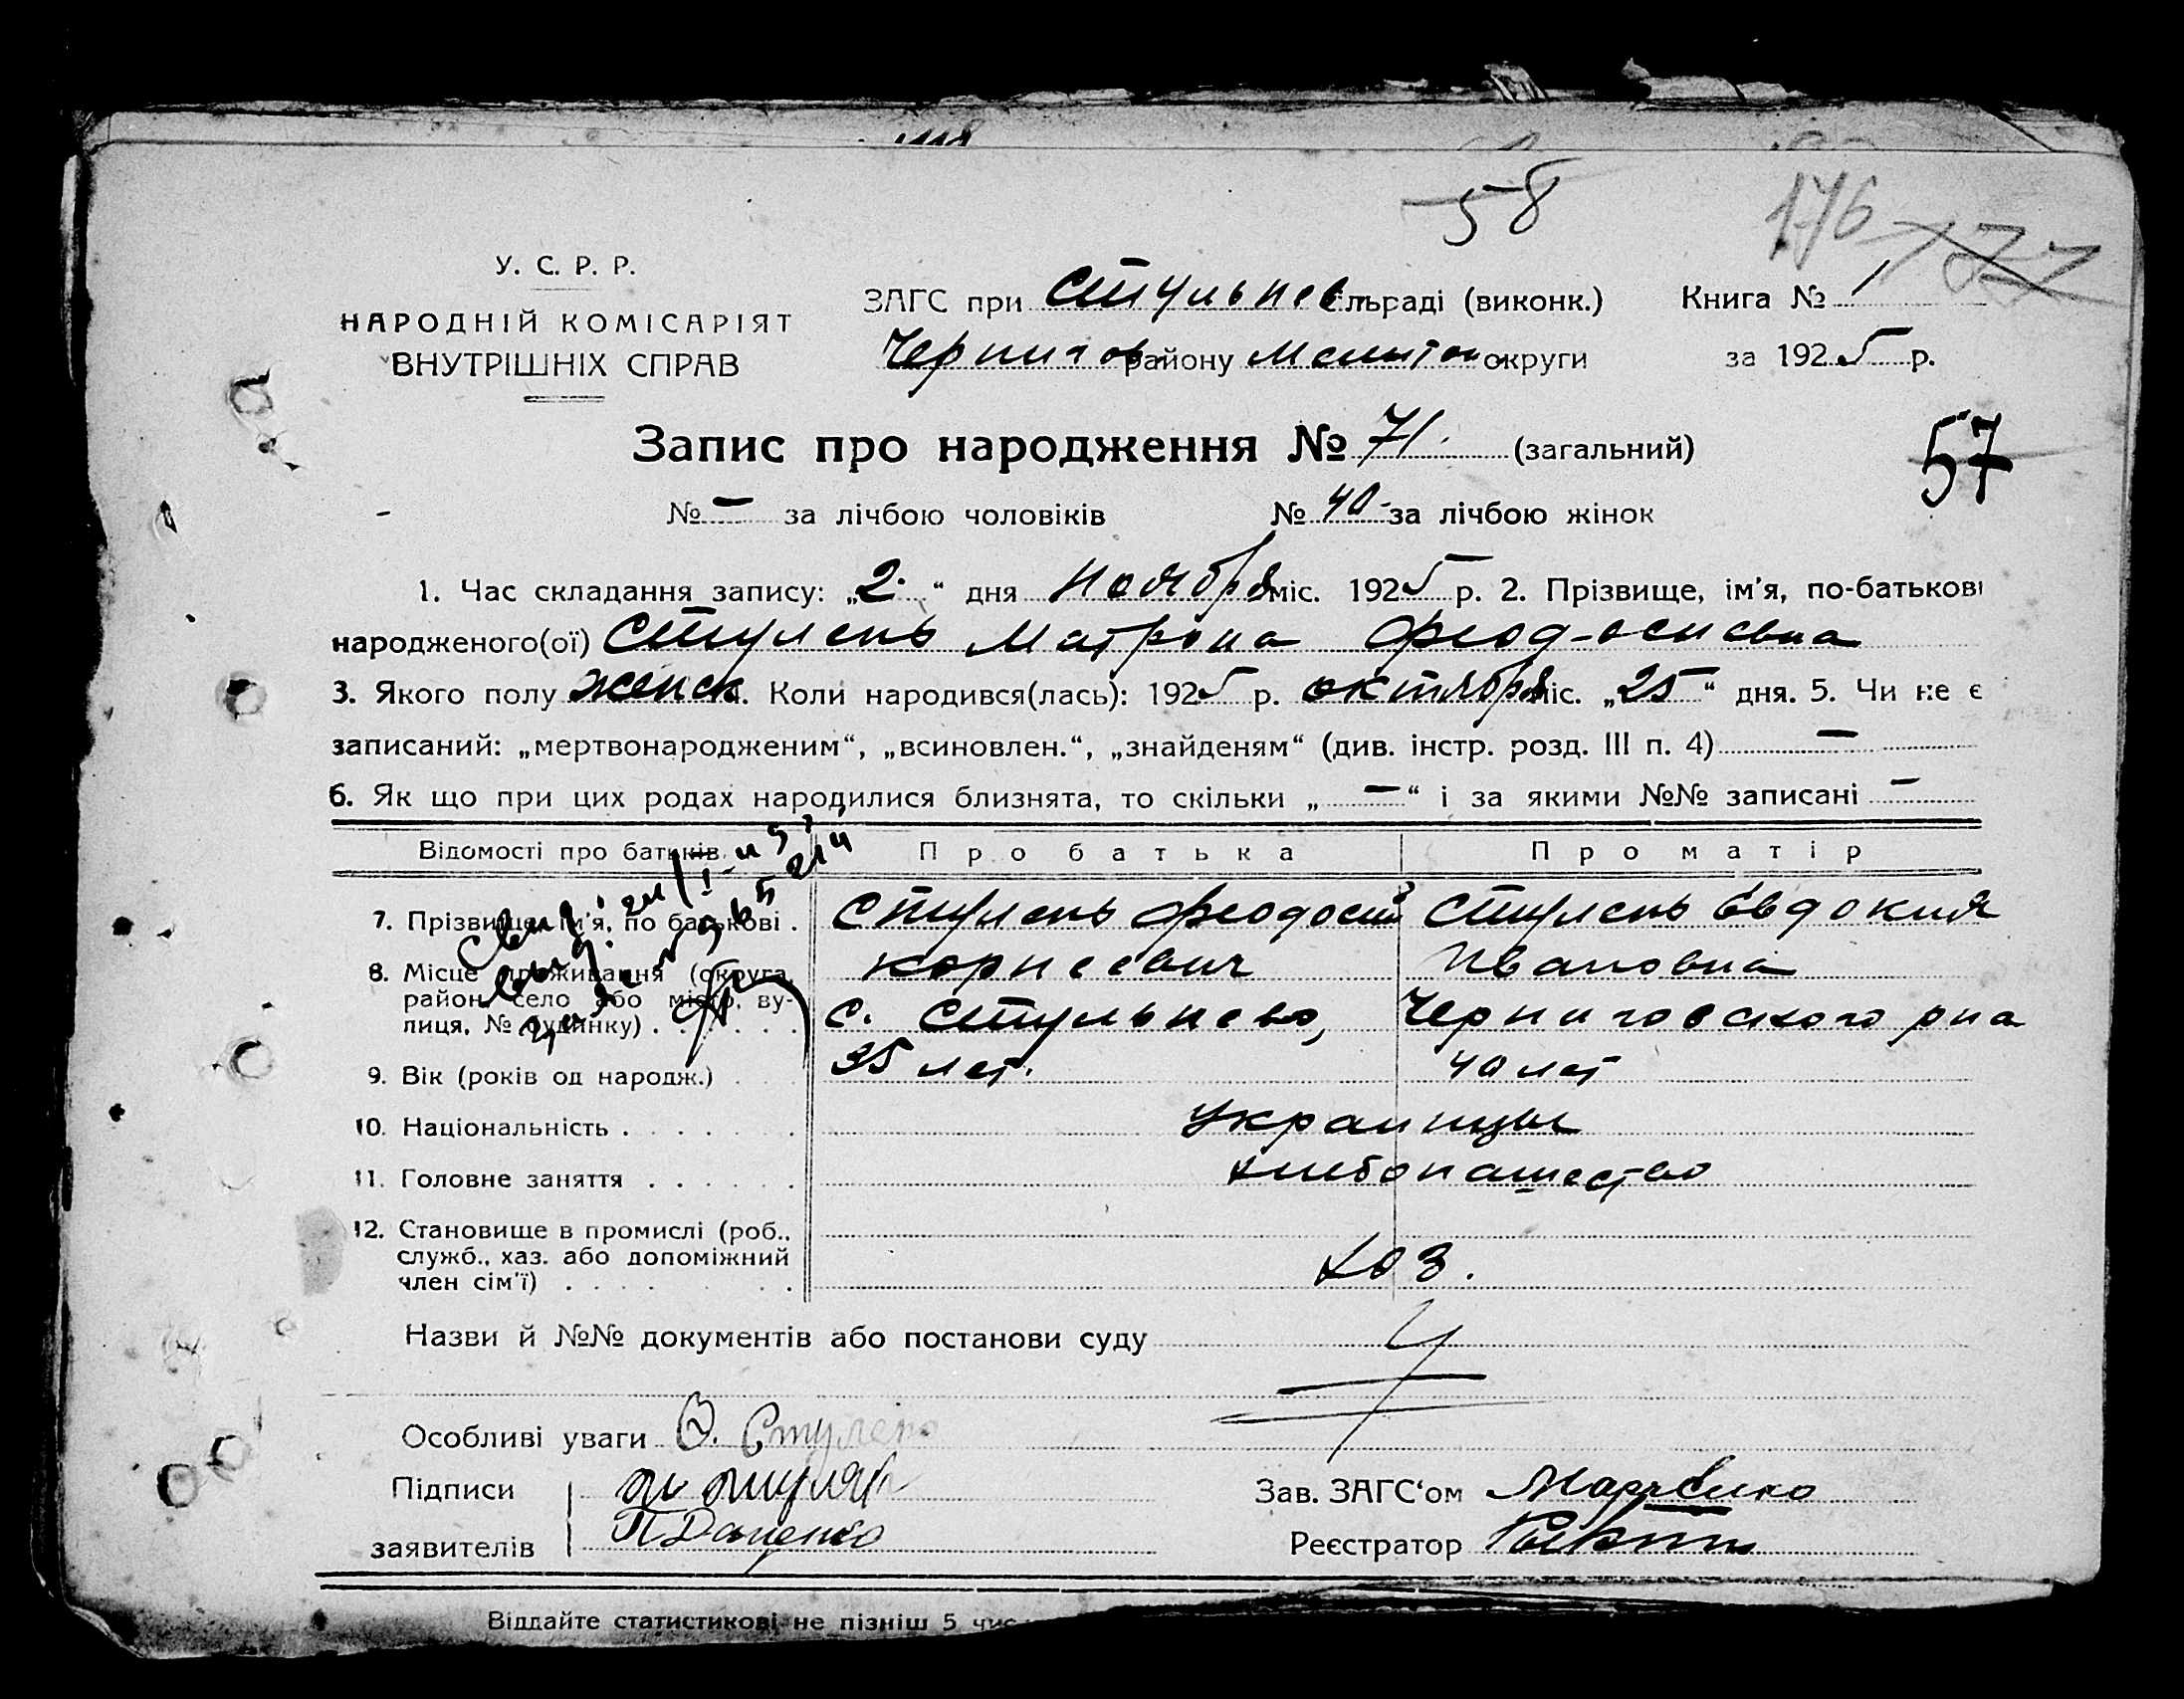 58
176 177
У. С. Р. Р.
НАРОДНІЙ КОМІСАРІЯТ
ВНУТРІШНІХ СПРАВ
ЗАГС при Стульнев. сільраді (виконк.) Книга № 1
Чернигов. району Мелитоп. округи за 1925 р.
57
Запис про народження № 71. (загальний)
№ — за лічбою чоловіків № 40 за лічбою жінок
1. Час складання запису: „2“ дня Ноября міс. 1925 р. 2. Прізвище, ім'я, по-батькові
народженого(ої) Стулень Матрона Феодосиевна
3. Якого полу женск. 4. Коли народився(лась): 1925 р. октября міс. „25“ дня. 5. Чи не є
записаний: „мертвонародженим“, „всиновлен.“, „знайденям“ (див. інстр. розд. III п. 4) —
6. Як що при цих родах народилися близнята, то скільки „ — “ і за якими №№ записані —
Відомості про батьків Про батька Про матір
7. Прізвище, ім'я, по батькові . Стулень Феодосий Стулень Евдокия
8. Місце проживання (округа, Корнеевич Ивановна
район, село або місто, ву-
лиця, № будинку) . . . . . с. Стульнево, Черниговского р-на
9. Вік (років од народж.) . 35 лет. 40 лет
10. Національність . . . . . . Украинцы
11. Головне заняття . . . . . . хлебопашество
12. Становище в промислі (роб.,
служб., хаз. або допоміжний
член сім'ї) . . . . . . хоз.
Назви й №№ документів або постанови суду
Особливі уваги Ф. Стулень
Підписи Зав. ЗАГС‘ом
заявителів П Даценко Реєстратор
Віддайте статистикові не пізніш 5